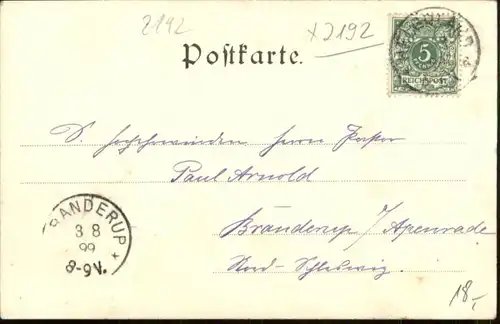 2142
x2192
Postkarte.
HELGOLAND
5
PFENNIG
REICHSPOST
S. Hochehrwürden Herrn Pastor
Paul Arnold
Bränderup / Apenrade
Nord-Schleswig.
BRANDERUP
3 8
99
8-9V.
*
18,-